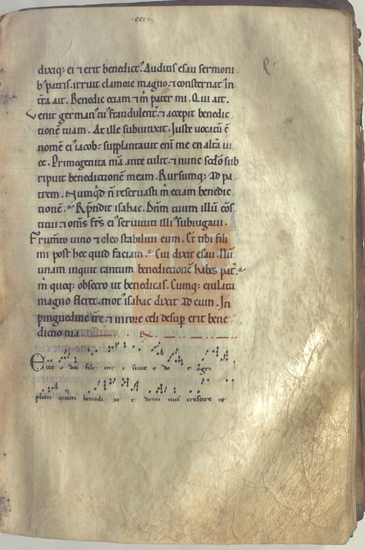 ·ccc·
dixiq; ei ⁊ erit benedict᷒. Auditis esau sermoni
b᷒ patris. irruit clamore magno. ⁊ consternat᷒ in
q̄ ait. Benedic eciam ⁊ m̄ pater mi. Qui ait.
Venit german᷒ tu᷒ fraudulent̄. ⁊ accepit benedic
tionē tuam. At ille subiunxit. Juste uocatū ē
nomē ei᷒ iacob. supplantauit enī me en altā ui
ce. Primogenita mā ante tulit. ⁊ nunc scdō sub
ripuit benedictionēm meam. Rursumq; ad pa
trem. Numqd n̄ reseruasti m̄ eciam benedic
tionē. Rn̄dit isahac. Dn̄m tuum illū cōs
titui ⁊ om̄s fr̄s ei᷒ seruituti illi᷒ subiugaui.
Frumto uino ⁊ oleo stabiliui eum. Et tibi fili
mi post hec quid faciam. Cui dixit esau. Nū
unam inquit tantum benedictionēm habes pat̄.
m̄ quoq; obsecro ut benedicas. Cumq; eiulatu
magno fleret. mot᷒ isahac dixit ad eum. In
pinguedine tr̄e ⁊ in rore celi desup̄ erit bene
dictio tua. R
Ecce odor filii mei sicut odor agri
pleni quem benedixit dominus crescere te